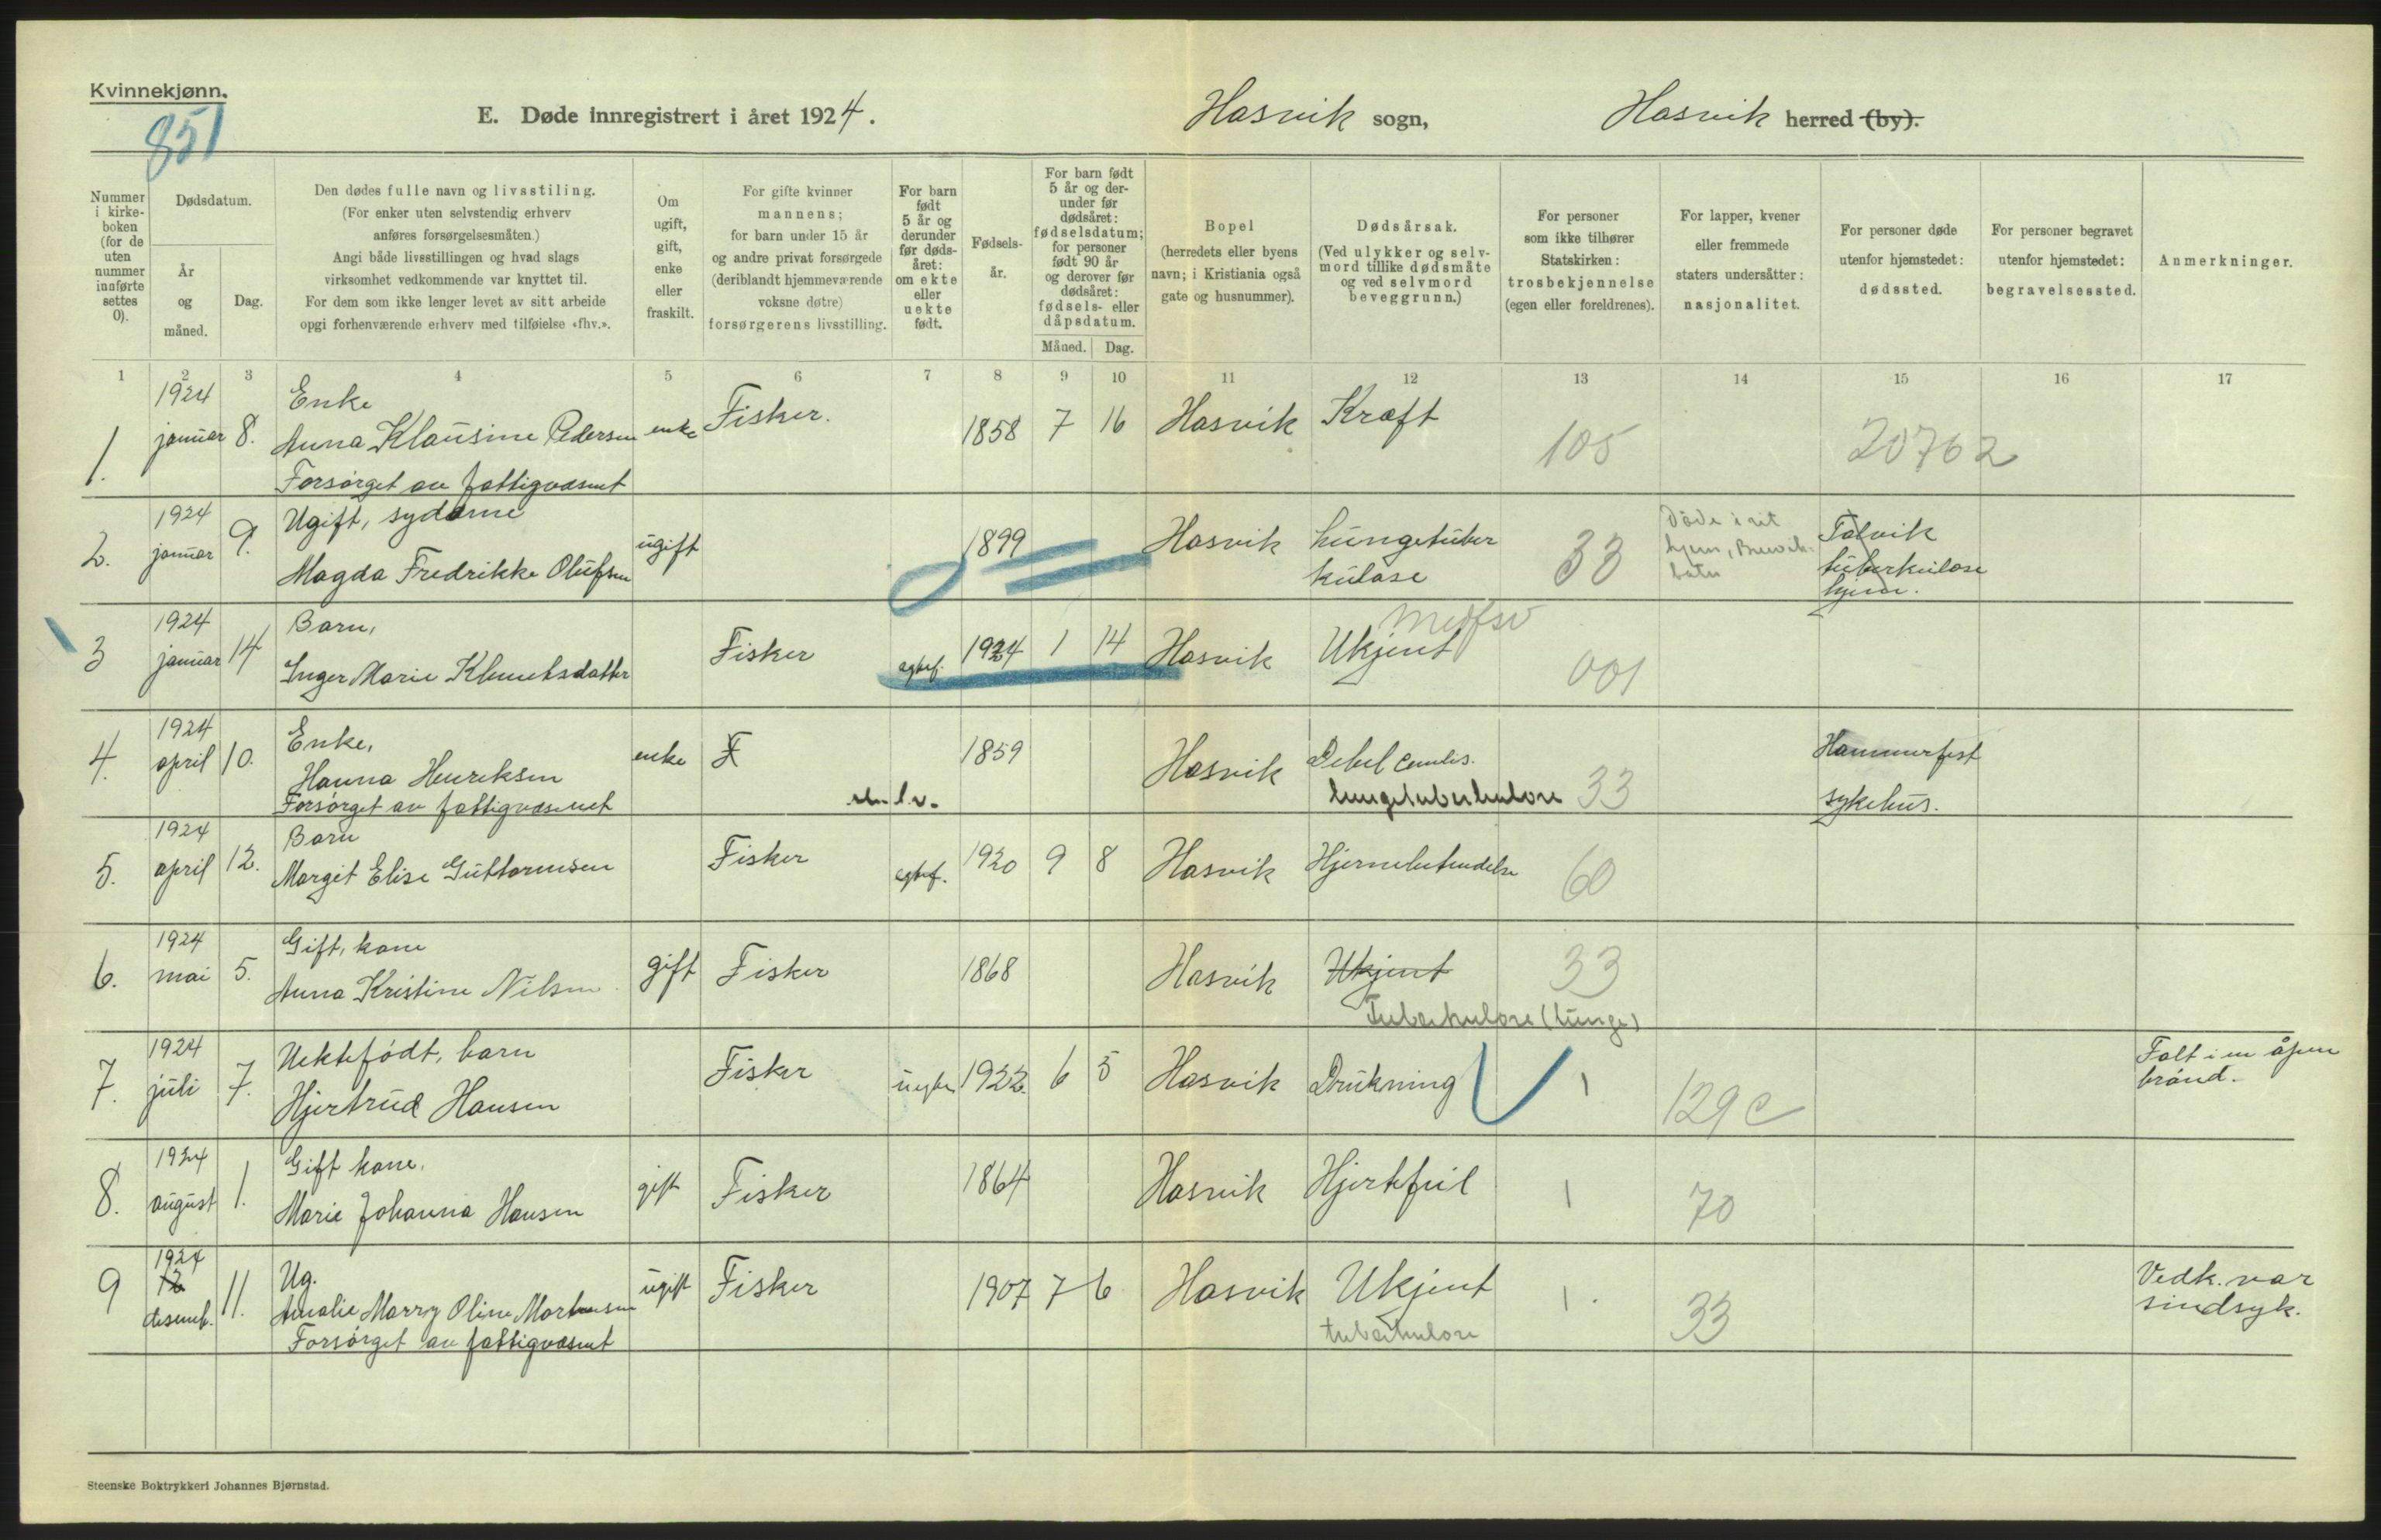 Kvinnekjønn.
851
E. Døde innregistrert i året 1924.
Hasvik sogn,
Hasvik herred (by).
Nummer i kirke- boken (for de uten nummer innførte settes 0).
Dødsdatum.
År og måned.
Dag.
Den dødes fulle navn og livsstiling.
(For enker uten selvstendig erhverv
anføres forsørgelsesmåten.)
Angi både livsstillingen og hvad slags
virksomhet vedkommende var knyttet til.
For dem som ikke lenger levet av sitt arbeide
opgi forhenværende erhverv med tilføielse «fhv.».
Om ugift, gift, enke eller fraskilt.
For gifte kvinner
mannens;
for barn under 15 år
og andre privat forsørgede
(deriblandt hjemmeværende
voksne døtre)
forsørgerens livsstilling.
For barn født 5 år og derunder før døds- året: om ekte eller uekte født.
Fødsels- år.
For barn født 5 år og der- under før dødsåret: fødselsdatum; for personer født 90 år og derover før dødsåret: fødsels- eller dåpsdatum.
Måned. Dag.
Bopel
(herredets eller byens
navn; i Kristiania også
gate og husnummer).
Dødsårsak.
(Ved ulykker og selv-
mord tillike dødsmåte
og ved selvmord
beveggrunn.)
For personer
som ikke tilhører
Statskirken:
trosbekjennelse
(egen eller foreldrenes).
For lapper, kvener
eller fremmede
staters undersåtter:
nasjonalitet.
For personer døde
utenfor hjemstedet:
dødssted.
For personer begravet
utenfor hjemstedet:
begravelsessted.
Anmerkninger.
1 2 3 4 5 6 7 8 9 10 11 12 13 14 15 16 17
1924 Enke
1. januar 8. Anna Klausine Pedersen enke Fisker. 1858 7 16 Hasvik Kræft 105 20762
Forsørget av fattigvæsnet
1924 Ugift, sydame
2. januar 9. Magda Fredrikke Olufsen ugift 1899 Hasvik Lungetuber kulose 33
Døde i sit
hjem,
Talvik
tuberkulose
hjem.
1924 Barn,
3 januar 14 Inger Marie Klemetsdatter Fisker egtef. 1924 1 14 Hasvik Ukjent 001
1924 Enke,
4. april 10. Hanna Henriksen enke F 1859 Hasvik Debel
Forsørget av fattigvæsenet
lungetuberkulose 33
Hammerfest
sykehus.
1924 Barn
5. april 12. Margit Elise Guttormsen Fisker egtef. 1920 9 8 Hasvik Hjernebetendelse 60
1924 Gift, kone
6. mai 5. Anna Kristine Nilsen gift Fisker 1868 Hasvik Ukjent 33
Tuberkulose (lunge)
1924 Uektefødt, barn
7. juli 7. Hjertrud Hansen Fisker uegte 1922 6 5 Hasvik Drukning 1 129c
Falt i en åpen
brønd.
1924 Gift kone.
8. august 1. Marie Johanna Hansen gift Fisker 1864 Hasvik Hjertefeil 1 70
1924 Ug.
12
9 desemb. 11. Amalie Marry Oline Mortensen ugift Fisker 1907 7 6 Hasvik Ukjent 1. 33
Forsørget av fattigvæsnet
tuberkulose
Vedk. var
sindsyk.
Steenske Boktrykkeri Johannes Bjørnstad.